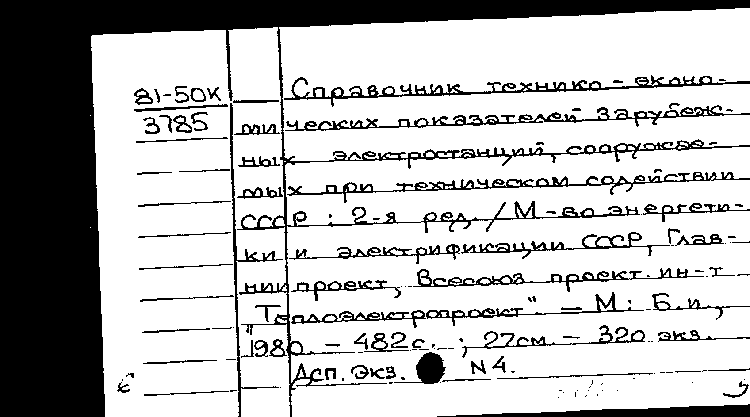 81-50К
3785
Справочник технико-эконо-
мических показателей зарубеж-
ных электростанций, сооружае-
мых при техническом содействии
СССР : 2-я ред. / М-во энергети-
ки и электрификации СССР, Глав-
нипроект, Всесоюз. проект. ин-т
"Теплоэлектропроект". — М: Б.и.,
1980. – 482 с. ; 27см. – 320 экз.
Дсп. Экз. N 4.